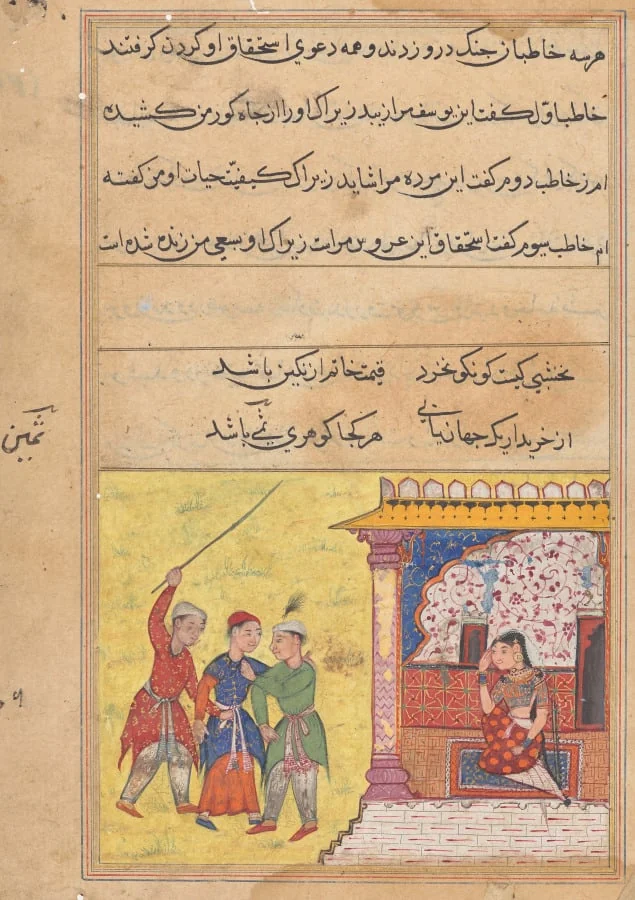 هر سه خاطبان جنک در و زدند و همه دعوی استحقاق او کردن کرفتند
خاطب اول کفت این یوسف مرا زیبد زیراک او را از جاه کور من کشیده
ام ز خاطب دوم کفت این مرده مرا شاید زیراک کیفیت حیات او من کفته
ام خاطب سیوم کفت استحقاق این عروس مراست زیراک او بسعی من زنده شده است
نخشبی کیت کو نکو نخرد قیمت خاتم از نکین باشد
از خریدار یک جهان یابی هر کجا کوهری ثمین باشد
ثمین